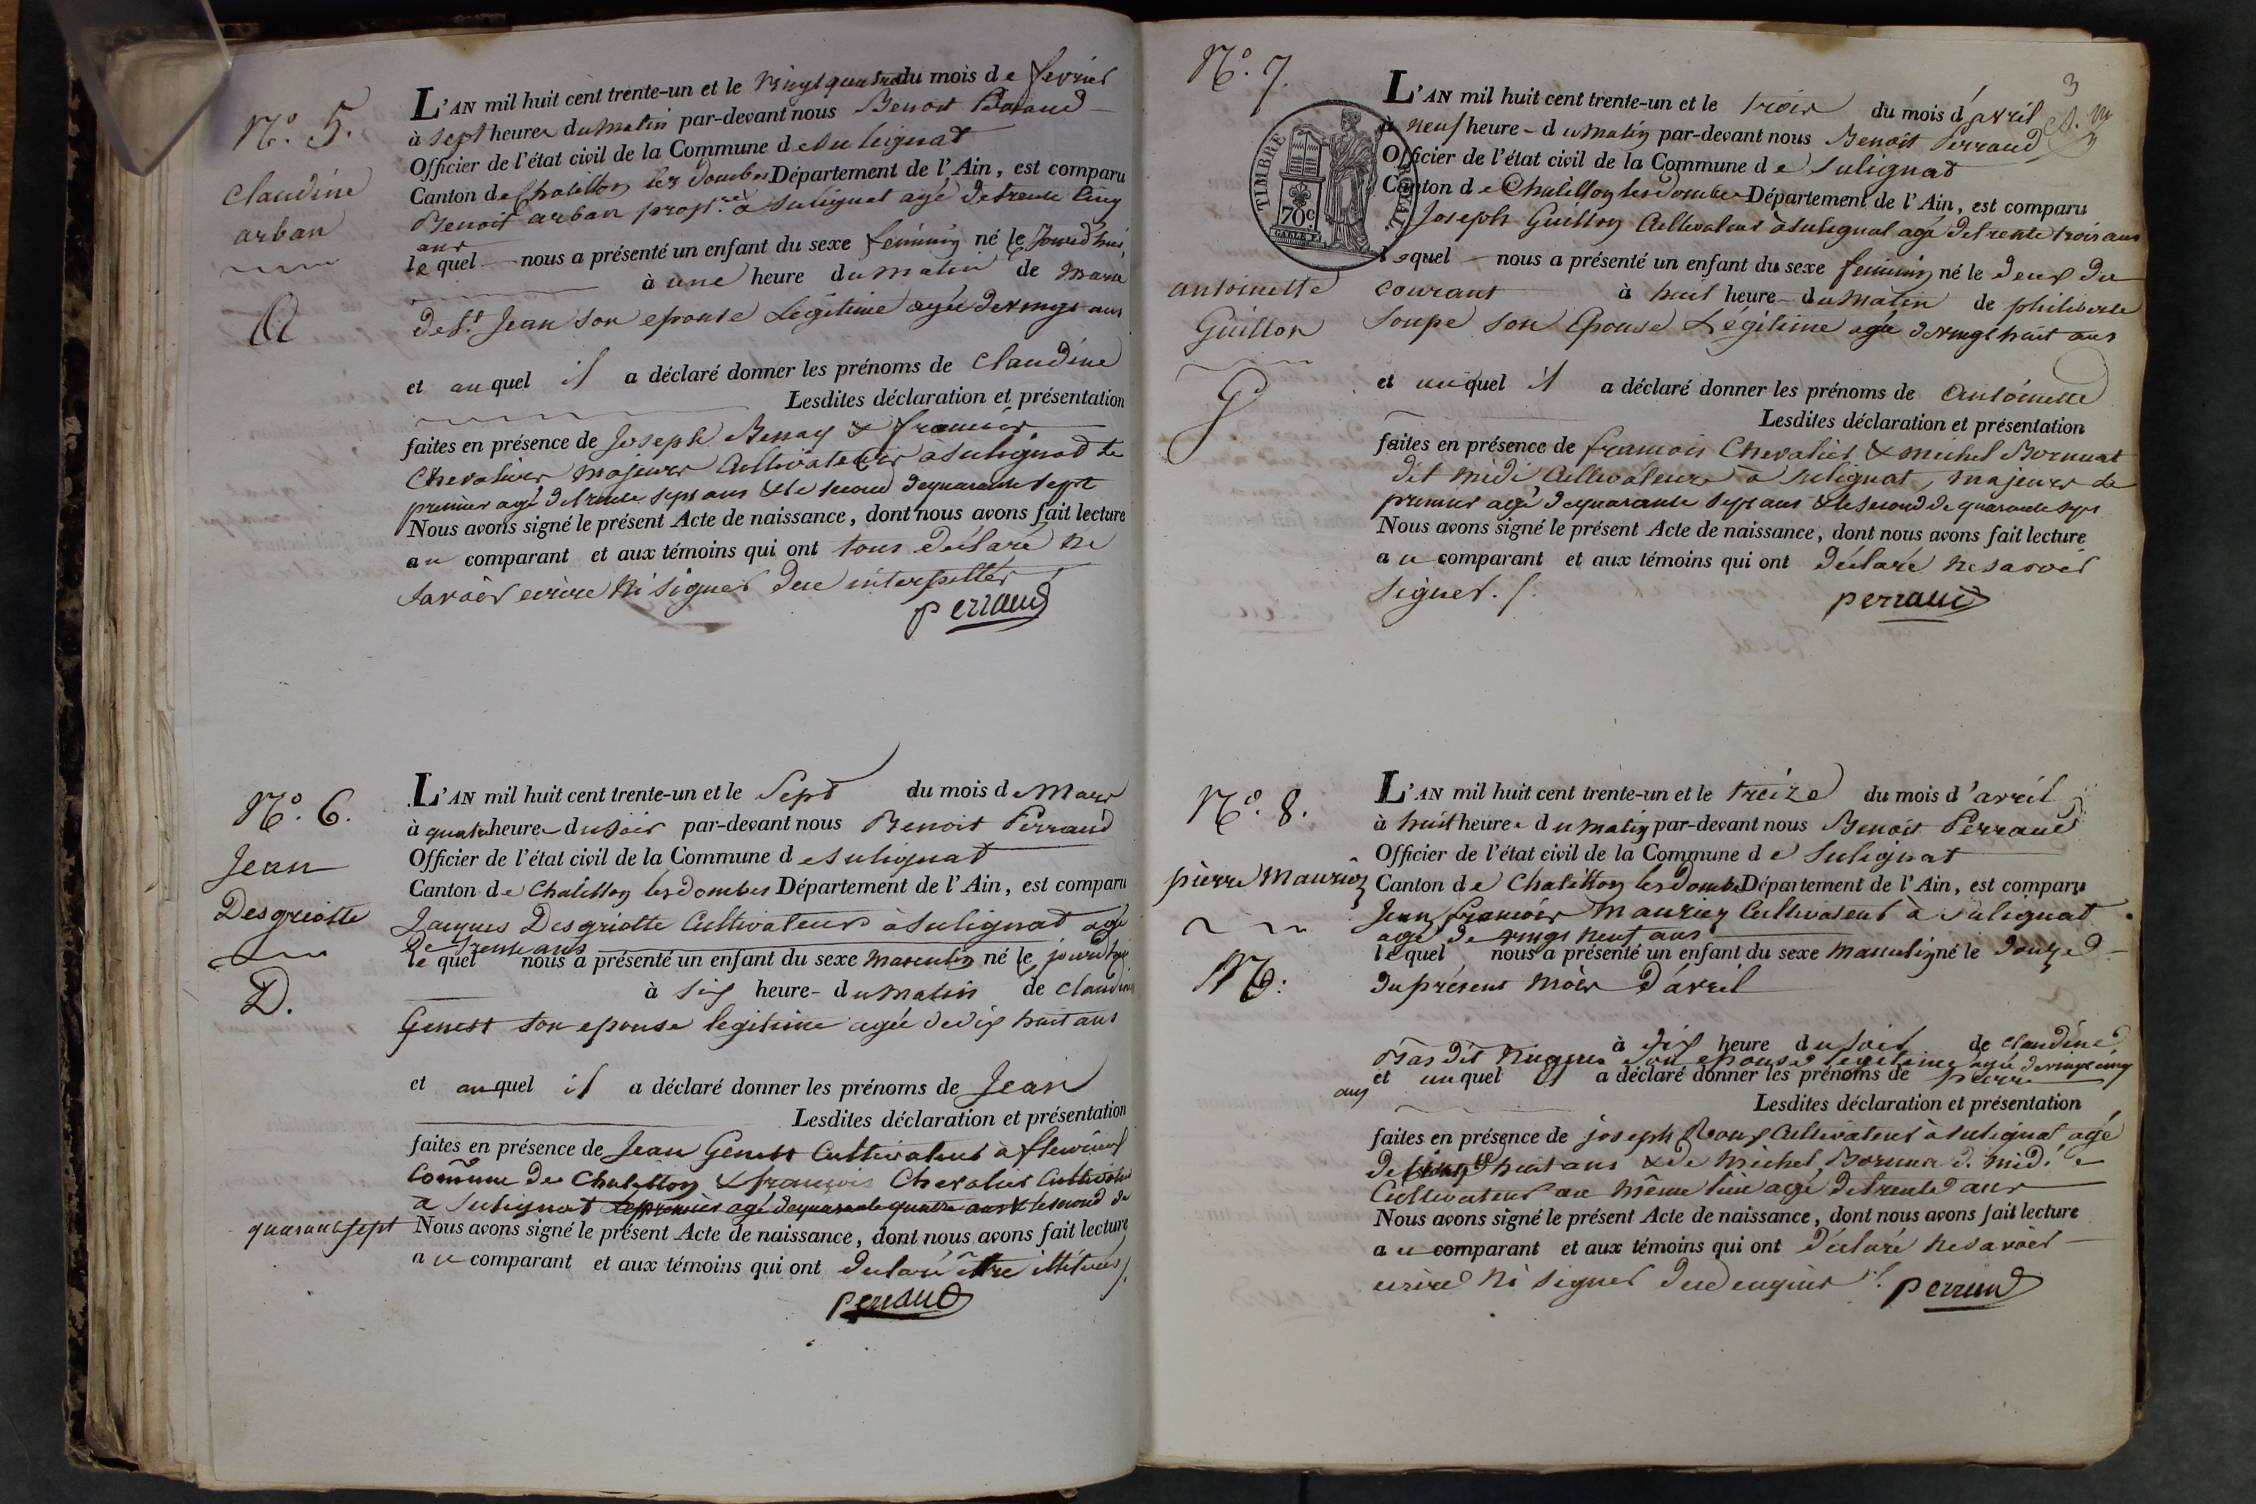 N.° 5.
Claudine
arban
A
L'AN mil huit cent trente-un et le vingt quatre du mois de fevrier
à sept heures du matin par-devant nous Benoit Peraud
Officier de l'état civil de la Commune de Sulignat
Canton de Chatillon les dombes Département de l'Ain, est comparu
Benoit arban prop.re à Sulignat agé de trente cinq
ans
le quel nous a présenté un enfant du sexe feminin né le Jourd'hui
à une heure du matin de Marie
de St. Jean son epouse Légitime agée de vingt ans
et au quel il a déclaré donner les prénoms de Claudine
Lesdites déclaration et présentation
faites en présence de Joseph & francois
Chevalier majeurs Cultivateurs à Sulignat le
premier agé de trente sept ans & le second de quarante sept
Nous avons signé le présent Acte de naissance, dont nous avons fait lecture
au comparant et aux témoins qui ont tous déclaré ne
Savoir ecrire ni signer de ce interpellés
perraud
N.° 6.
Jean
Desgriotte
D.
L'AN mil huit cent trente-un et le Sept du mois de Mars
à quatre heures du soir par-devant nous Benoit Perraud
Officier de l'état civil de la Commune de Sulignat
Canton de Chatillon les dombes Département de l'Ain, est comparu
Jacques Desgriotte Cultivateur à Sulignat agé
de trente ans
le quel nous a présenté un enfant du sexe masculin né le jourd'hui
à six heure du matin de Claudine
Genest son epouse legitime agée de dix huit ans
et au quel il a déclaré donner les prénoms de Jean
Lesdites déclaration et présentation
faites en présence de Jean Genest Cultivateur à fleurieux
Commune de Chatillon & françois Chevalier Cultivateur
a Sulignat le premier agé de quarante quatre ans & le second de
quarante sept
Nous avons signé le présent Acte de naissance, dont nous avons fait lecture
au comparant et aux témoins qui ont declaré être illitérés
perraud
3
N.° 7.
TIMBRE ROYAL
70c.
antoinette
Guillon
G
L'AN mil huit cent trente-un et le trois du mois d'avril
à neuf heure du matin par-devant nous Benoit Perraud
Officier de l'état civil de la Commune de Sulignat
Canton de Chatillon les dombes Département de l'Ain, est comparu
Joseph Guillon Cultivateur à Sulignat agé de trente trois ans
lequel nous a présenté un enfant du sexe feminin né le deux du
courant à huit heure du matin de philiberte
Soupe son Epouse Légitime agée de vingt huit ans
et au quel il a déclaré donner les prénoms de Antoinette
Lesdites déclaration et présentation
faites en présence de francois Chevalier & michel Bornuat
dit midi Cultivateurs à Sulignat, majeurs le
premier agé de quarante sept ans & le second de quarante sept
Nous avons signé le présent Acte de naissance, dont nous avons fait lecture
au comparant et aux témoins qui ont déclaré ne savoir
signer.
perraud
N.° 8.
pierre Maurier
M:
L'AN mil huit cent trente-un et le treize du mois d'avril
à huit heures du matin par-devant nous Benoit Perraud
Officier de l'état civil de la Commune de Sulignat
Canton de Chatillon les dombes Département de l'Ain, est comparu
Jean françois Maurier Cultivateur à Sulignat
agé de vingt neuf ans
le quel nous a présenté un enfant du sexe masculin né le douze
du présent mois d'avril
à dix heure du soir de claudine
Bas dit hugues son epouse legitime agée de vingt cinq
ans
et au quel il a déclaré donner les prénoms de pierre
Lesdites déclaration et présentation
faites en présence de joseph Roux Cultivateur à Sulignat agé
de huit ans & de Michel Bornua d. midi
Cultivateur au même lieu agé de trente ans
Nous avons signé le présent Acte de naissance, dont nous avons fait lecture
au comparant et aux témoins qui ont déclaré ne savoir
ecrire ni signer de ce enquis
perraud